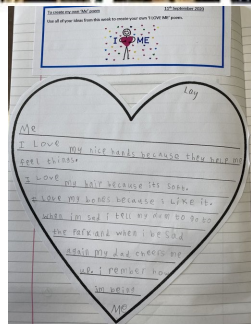 To create my own 'Me' poem 11th September 2020
Use all of your ideas from this week to create your own 'I LOVE ME' poem.
I ME
Loy
Me
I Love my nice hands because they help me
feel things.
I Love my hair because its soft.
I Love my bones because I Like it.
when im sad i tell my mom to go to
the Park and when i be sad
again my dad cheers me
up. i rember
im being
Me